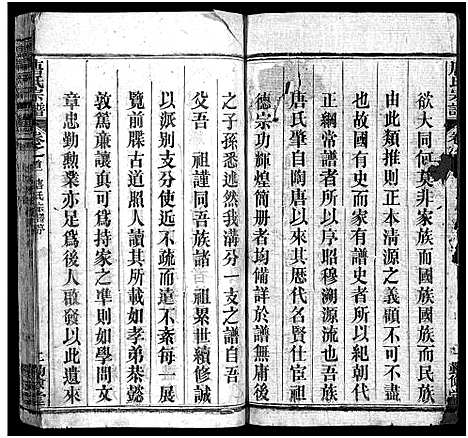 欲大同何莫非家族而國族國族而民族
以此類推則正本清源之義顧不可不盡
然國有史而家有譜史所以紀朝代
正綱常譜者所以序昭穆溯源流也吾族
唐氏肇自陶唐以來其歷代名賢仕宦祖
德宗功輝煌簡册者均備詳於譜無庸後
之子孫悉述然我溝分一支之譜自吾
父吾 祖謹同吾族諸 祖累世續修誠
以派別支分使近不疏而遠不紊每一展
覽前牒古道照人讀其所載如孝弟恭懿
敦篤廉讓眞可為持家之準則如學問文
章忠勤勲業亦足為後人啟發以此遺來
唐氏宗譜
卷之首
唐氏宗譜